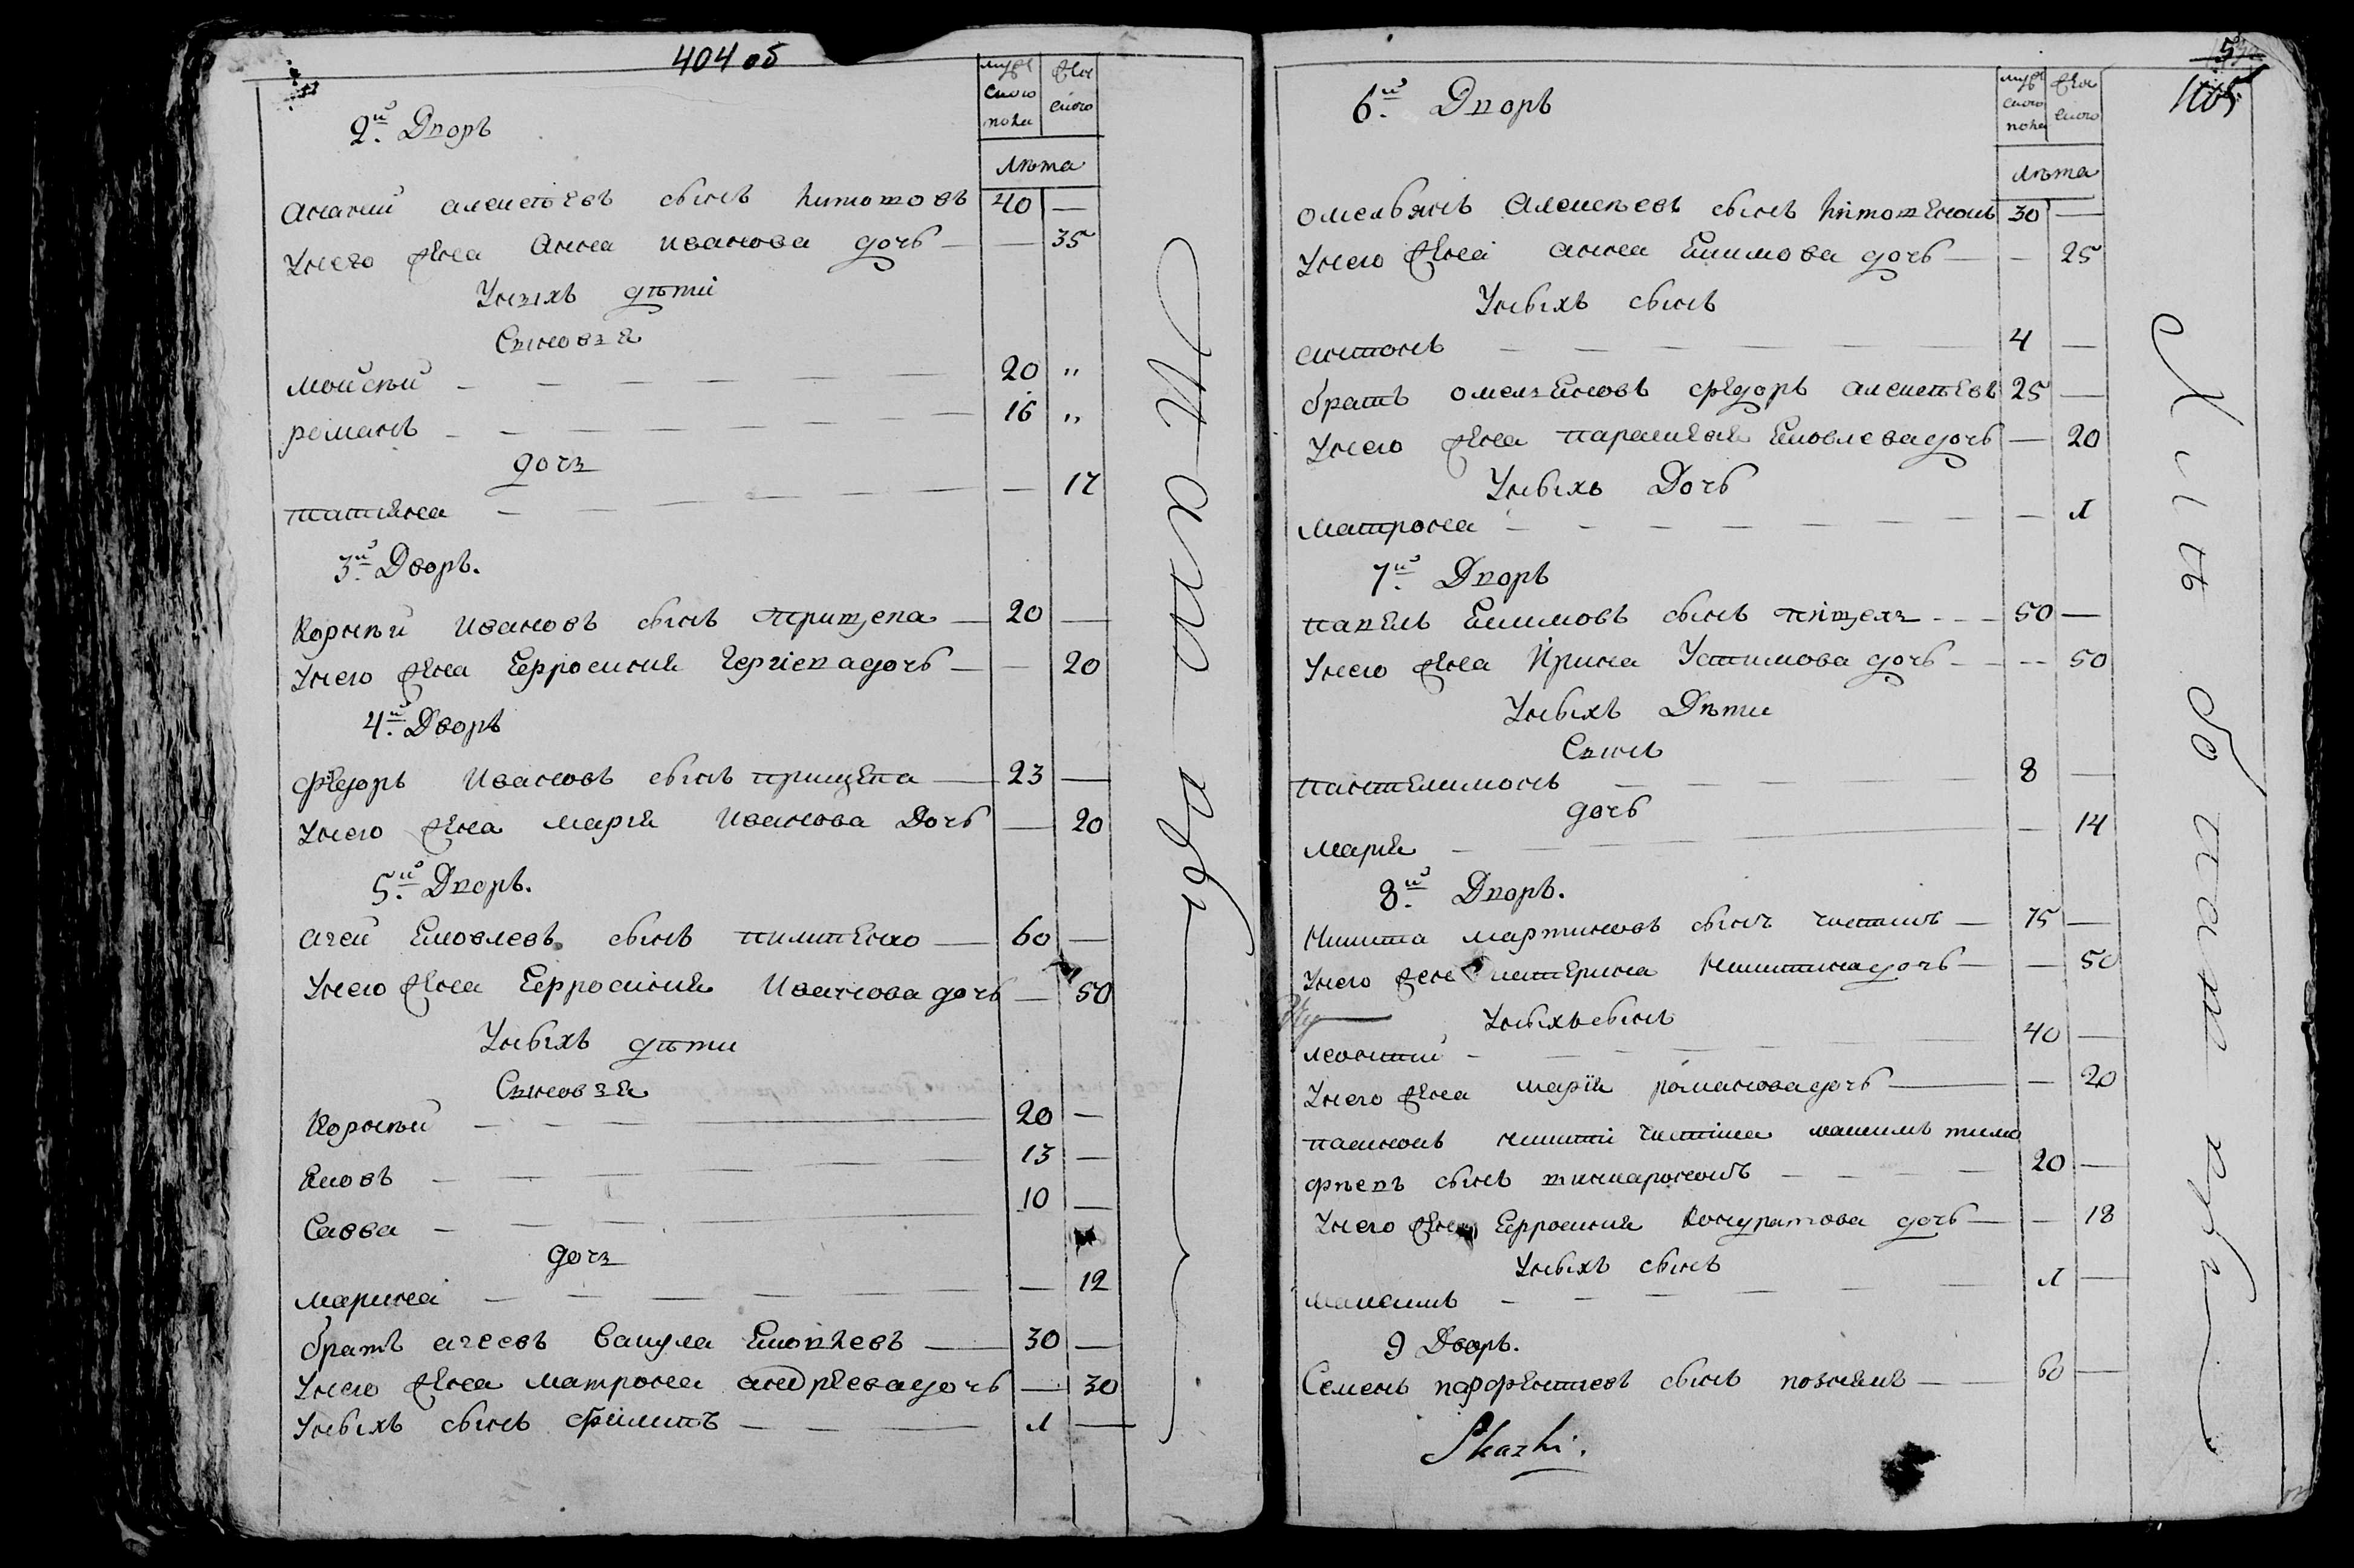 404 об
мужескаго пола
женскаго
лѣта
2й Дворъ
Ананий алексѣевъ сынъ китотовъ 40 —
Унего жена Анна иванова дочь — — 35
Унихъ дѣти
Сыновья
Мойсѣй — 20 „
романъ — 16 „
дочь
татьяна — — 17
3й Дворъ.
Корнѣй Ивановъ сынъ прищепа — 20 —
Унего жена Ефросиния дочь — — 20
4й Дворъ
Федоръ Ивановъ сынъ прищепа — 23 —
Унего жена мария Иванова Дочь — 20
5й Дворъ.
агей Яковлевъ сынъ пилипенко — 60 —
Унего жена Ефросиния Иванова дочь — 50
Унихъ дѣти
Сыновья
Корнѣй — 20 —
Яковъ — 13 —
Савва — 10 —
дочь
марина — — 12
братъ агеевъ вакула Яковлевъ — 30 —
Унего жена матрона андреева дочь — 30
Унихъ сынъ филипъ — 1 —
5
405
мужескаго пола
женскаго
лѣта
6й Дворъ
омельянъ Алексѣевъ сынъ 30 —
Унего жена анна Якимова дочь — — 25
Унихъ сынъ
антонъ — 4 —
братъ омельяновъ федоръ алексѣевъ 25 —
Унего жена параскевия Яковлева дочь — 20
Унихъ Дочь
матрона — — 1
7й Дворъ
павелъ Якимовъ сынъ — 50 —
Унего жена Ирина Устимова дочь — — 50
Унихъ Дѣти
Сынъ
пантелимонъ — 8 —
дочь
мария — — 14
8й Дворъ.
Никита мартиновъ сынъ — 75 —
Унего жена катерина Никитина дочь — — 50
Унихъ сынъ
леонтий — 40 —
Унего жена мария романова дочь — — 20
пасинокъ никити максимъ тимо
фѣевъ сынъ — 20 —
Унего жена Ефросиния Кондратова дочь — — 18
Унихъ сынъ
максимъ — 1 —
9 Дворъ.
Семенъ парфентиевъ сынъ познякъ — 60 —